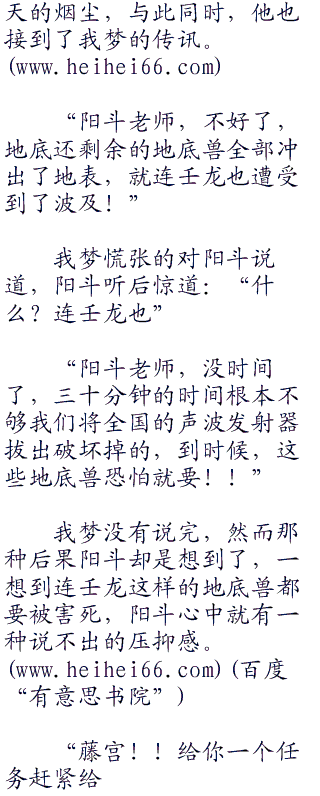 天的烟尘，与此同时，他也
接到了我梦的传讯。
(www.heihei66.com)
“阳斗老师，不好了，
地底还剩余的地底兽全部冲
出了地表，就连壬龙也遭受
到了波及！”
我梦慌张的对阳斗说
道，阳斗听后惊道：“什
么？连壬龙也”
“阳斗老师，没时间
了，三十分钟的时间根本不
够我们将全国的声波发射器
拔出破坏掉的，到时候，这
些地底兽恐怕就要！！”
我梦没有说完，然而那
种后果阳斗却是想到了，一
想到连壬龙这样的地底兽都
要被害死，阳斗心中就有一
种说不出的压抑感。
(www.heihei66.com)(百度
“有意思书院”)
“藤宫！！给你一个任
务赶紧给